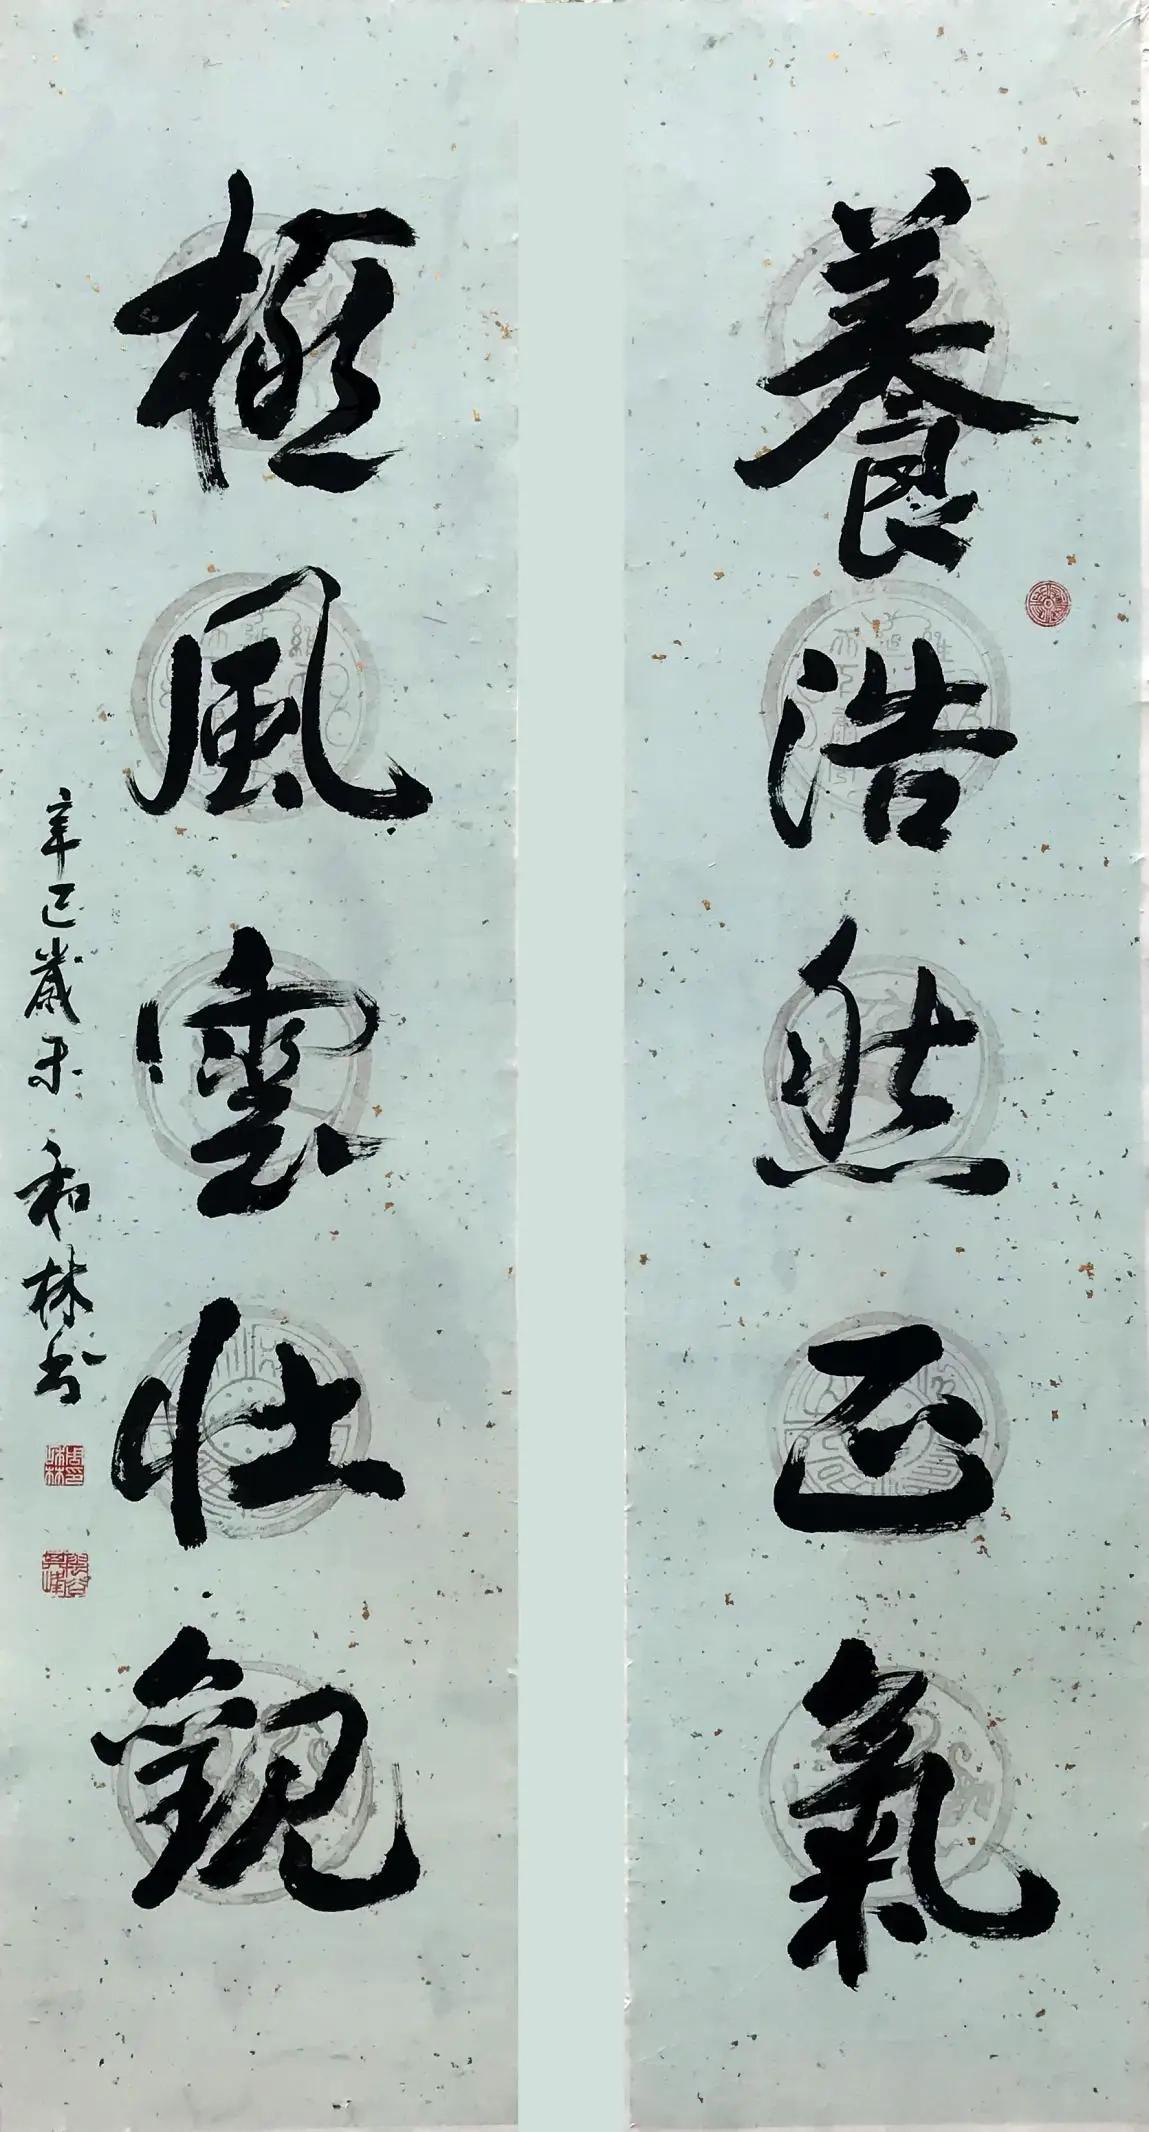 養浩然正氣
極風雲壯觀
辛巳歲末 和林书